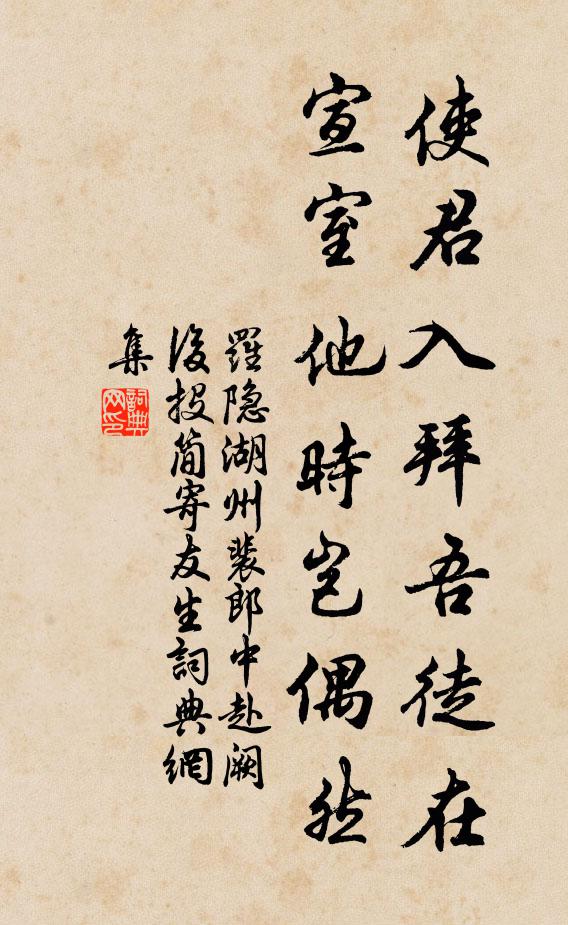 使君入拜吾徒在
宣室他時岂偶然
羅隐湖州裴郎中赴阙
後投简寄友生詞典網
集
詞典
网印